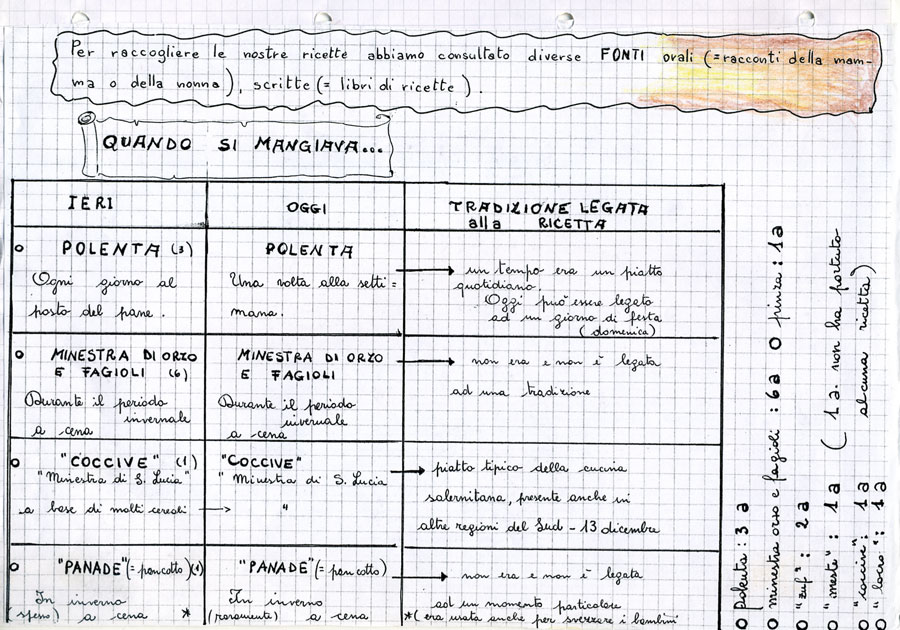 Per raccogliere le nostre ricette abbiamo consultato diverse FONTI orali (= racconti della mam-
ma o della nonna), scritte (= libri di ricette).
QUANDO SI MANGIAVA...
IERI
OGGI
TRADIZIONE LEGATA
alla RICETTA
POLENTA (3)
Ogni giorno al
posto del pane.
POLENTA
Una volta alla setti=
mana.
un tempo era un piatto
quotidiano.
Oggi può essere legato
ad un giorno di festa
(domenica)
MINESTRA DI ORZO
E FAGIOLI (6)
Durante il periodo
invernale
a cena
MINESTRA DI ORZO
E FAGIOLI
Durante il periodo
invernale
a cena
non era e non è legata
ad una tradizione
"COCCIVE" (1)
"Minestra di S. Lucia"
a base di molti cereali
"COCCIVE"
"Minestra di S. Lucia
"
piatto tipico della cucina
salernitana, presente anche in
altre regioni del Sud - 13 dicembre
"PANADE" (= pan cotto) (1)
In inverno
(spesso) a cena *
"PANADE" (= pan cotto)
In inverno
(raramente) a cena
non era e non è legata
ad un momento particolare
*(era usata anche per svezzare i bambini
polenta : 3 a
minestra orzo e fagioli : 6 a O pinza : 1 a
"zuf" : 2 a
"meste" : 1 a (1 a. non ha portato
"coccive" : 1 a alcuna ricetta)
: 1 a